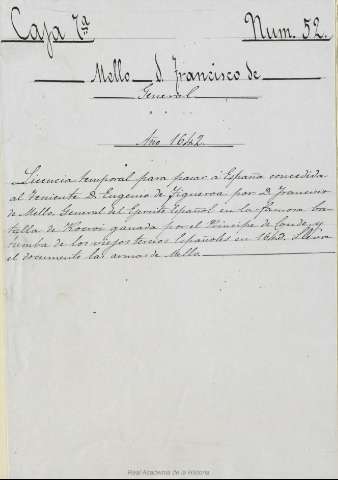 Caja 7ª Num. 52.
Mello D. Francisco de
General
Año 1642
Licencia temporal para pasar á España concedida
al teniente D. Eugenio de Figueroa por D. Francisco
de Mello General del Ejercito Español en la famosa ba-
talla de Rocroi ganada por el Principe de Condé y
tumba de los viejos tercios Españoles en 1643. Lleva
el documento las armas de Mello.
Real Academia de la Historia